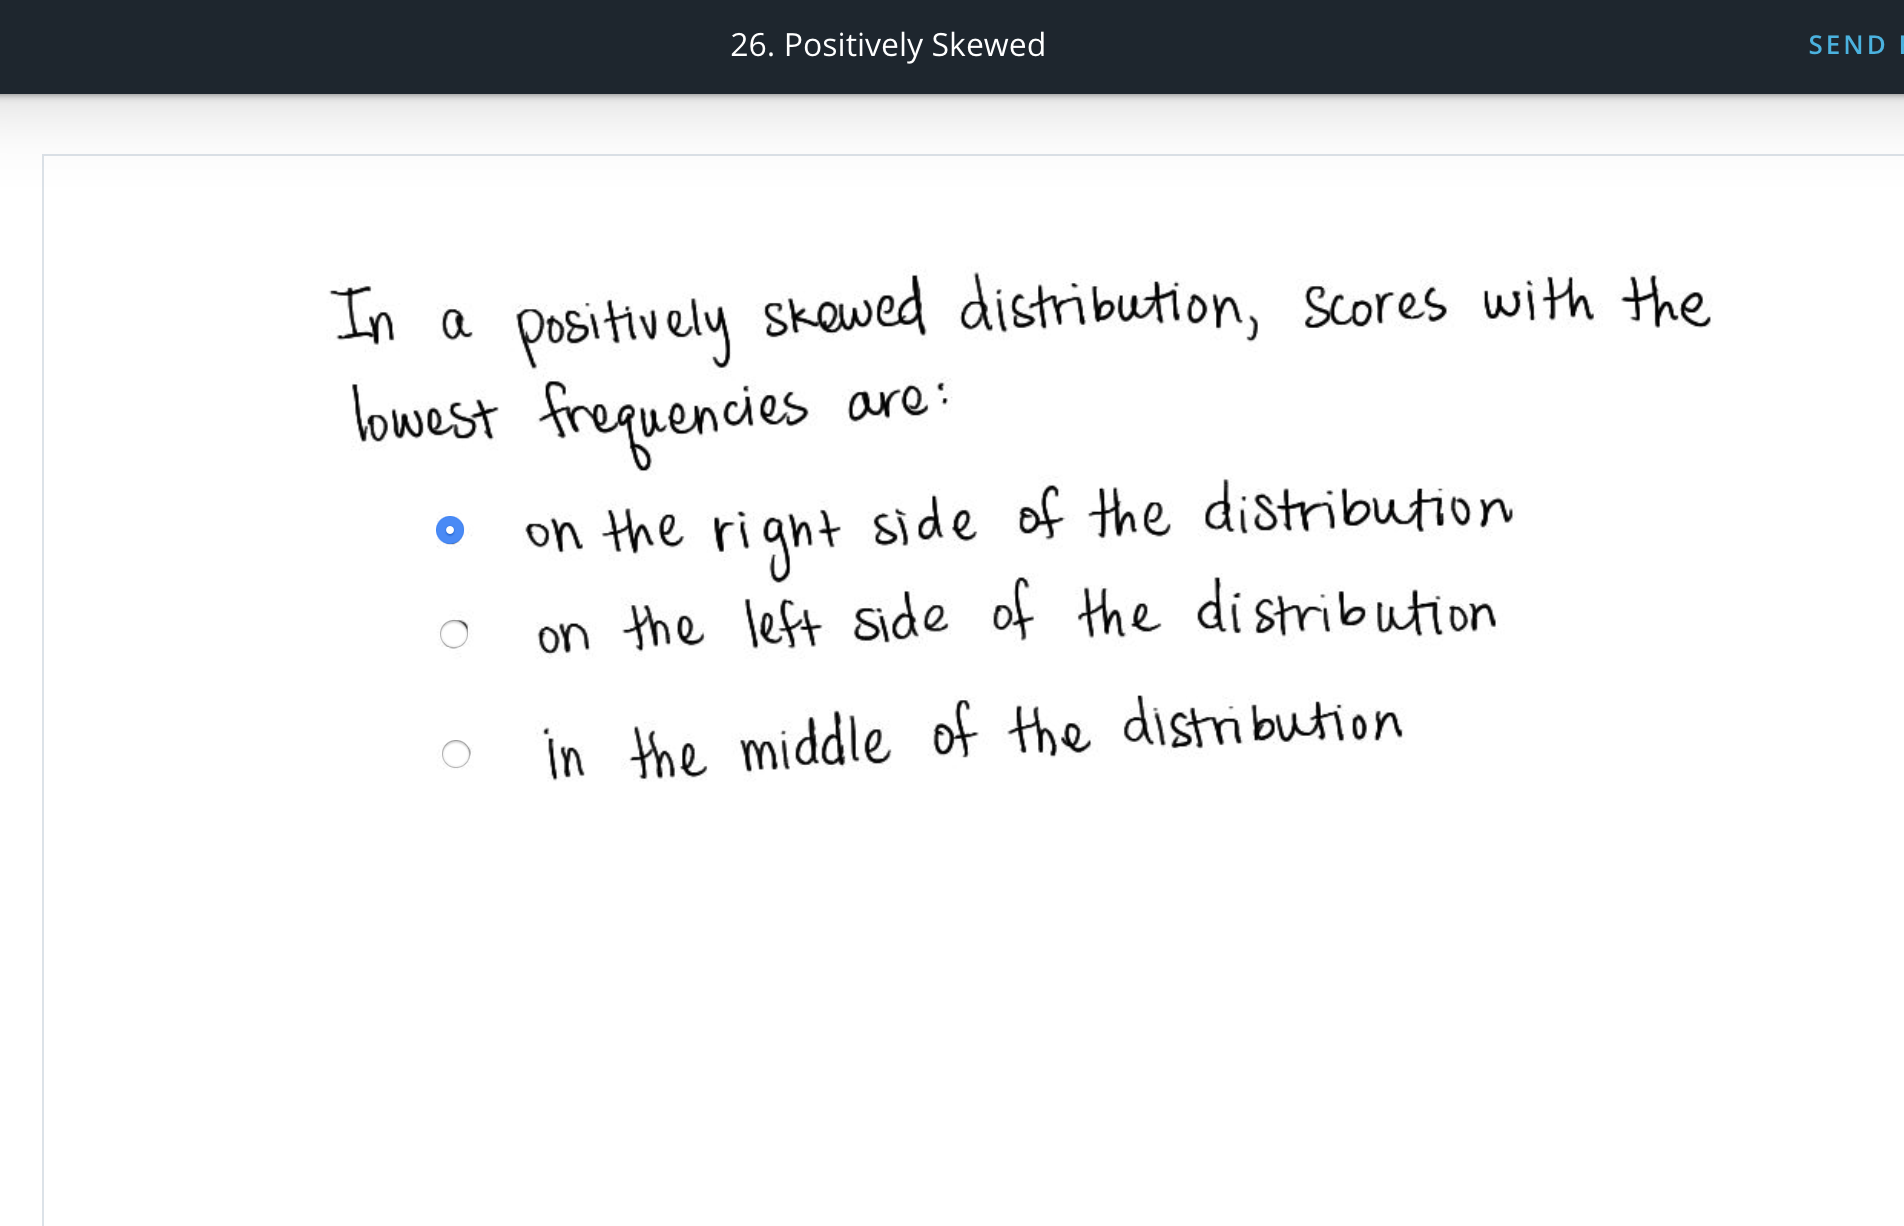 26. Positively Skewed
SEND
In a positively skewed distribution, scores with the
lowest frequencies are:
on the right side of the distribution
on the left side of the distribution
in the middle of the distribution